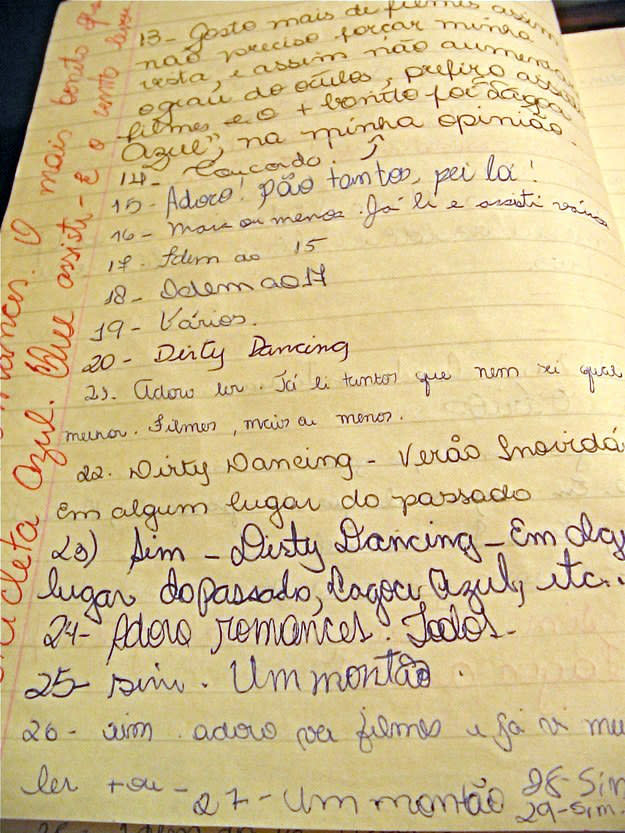 13- Gosto mais de filmes assim
não preciso forçar minha
vista, e assim não aumenta
o grau do óculos, prefiro
filmes e o + bonito foi "Lagoa
Azul", na minha opinião.
14- Concordo.
15- Adoro! Não tantos, sei lá!
16- Mais ou menos. Já li e assisti vários
17- Idem ao 15
18- Idem ao 17
19- Vários.
20- Dirty Dancing
21- Adoro ler. Já li tantos que nem sei qual
melhor. Filmes, mais ou menos.
22- Dirty Dancing - Verão Inovidá
Em algum lugar do passado
23) Sim - Dirty Dancing - Em alg
lugar do passado, Lagoa Azul, etc.
24- Adoro romances. Todos.
25- Sim. Um montão.
26- Sim adoro ver filmes e já vi mu
ler + ou -
27- Um montão 28- Sim
29- Sim.
mais bonito q
assisti - É o conto
cleta Azul.
romances. O